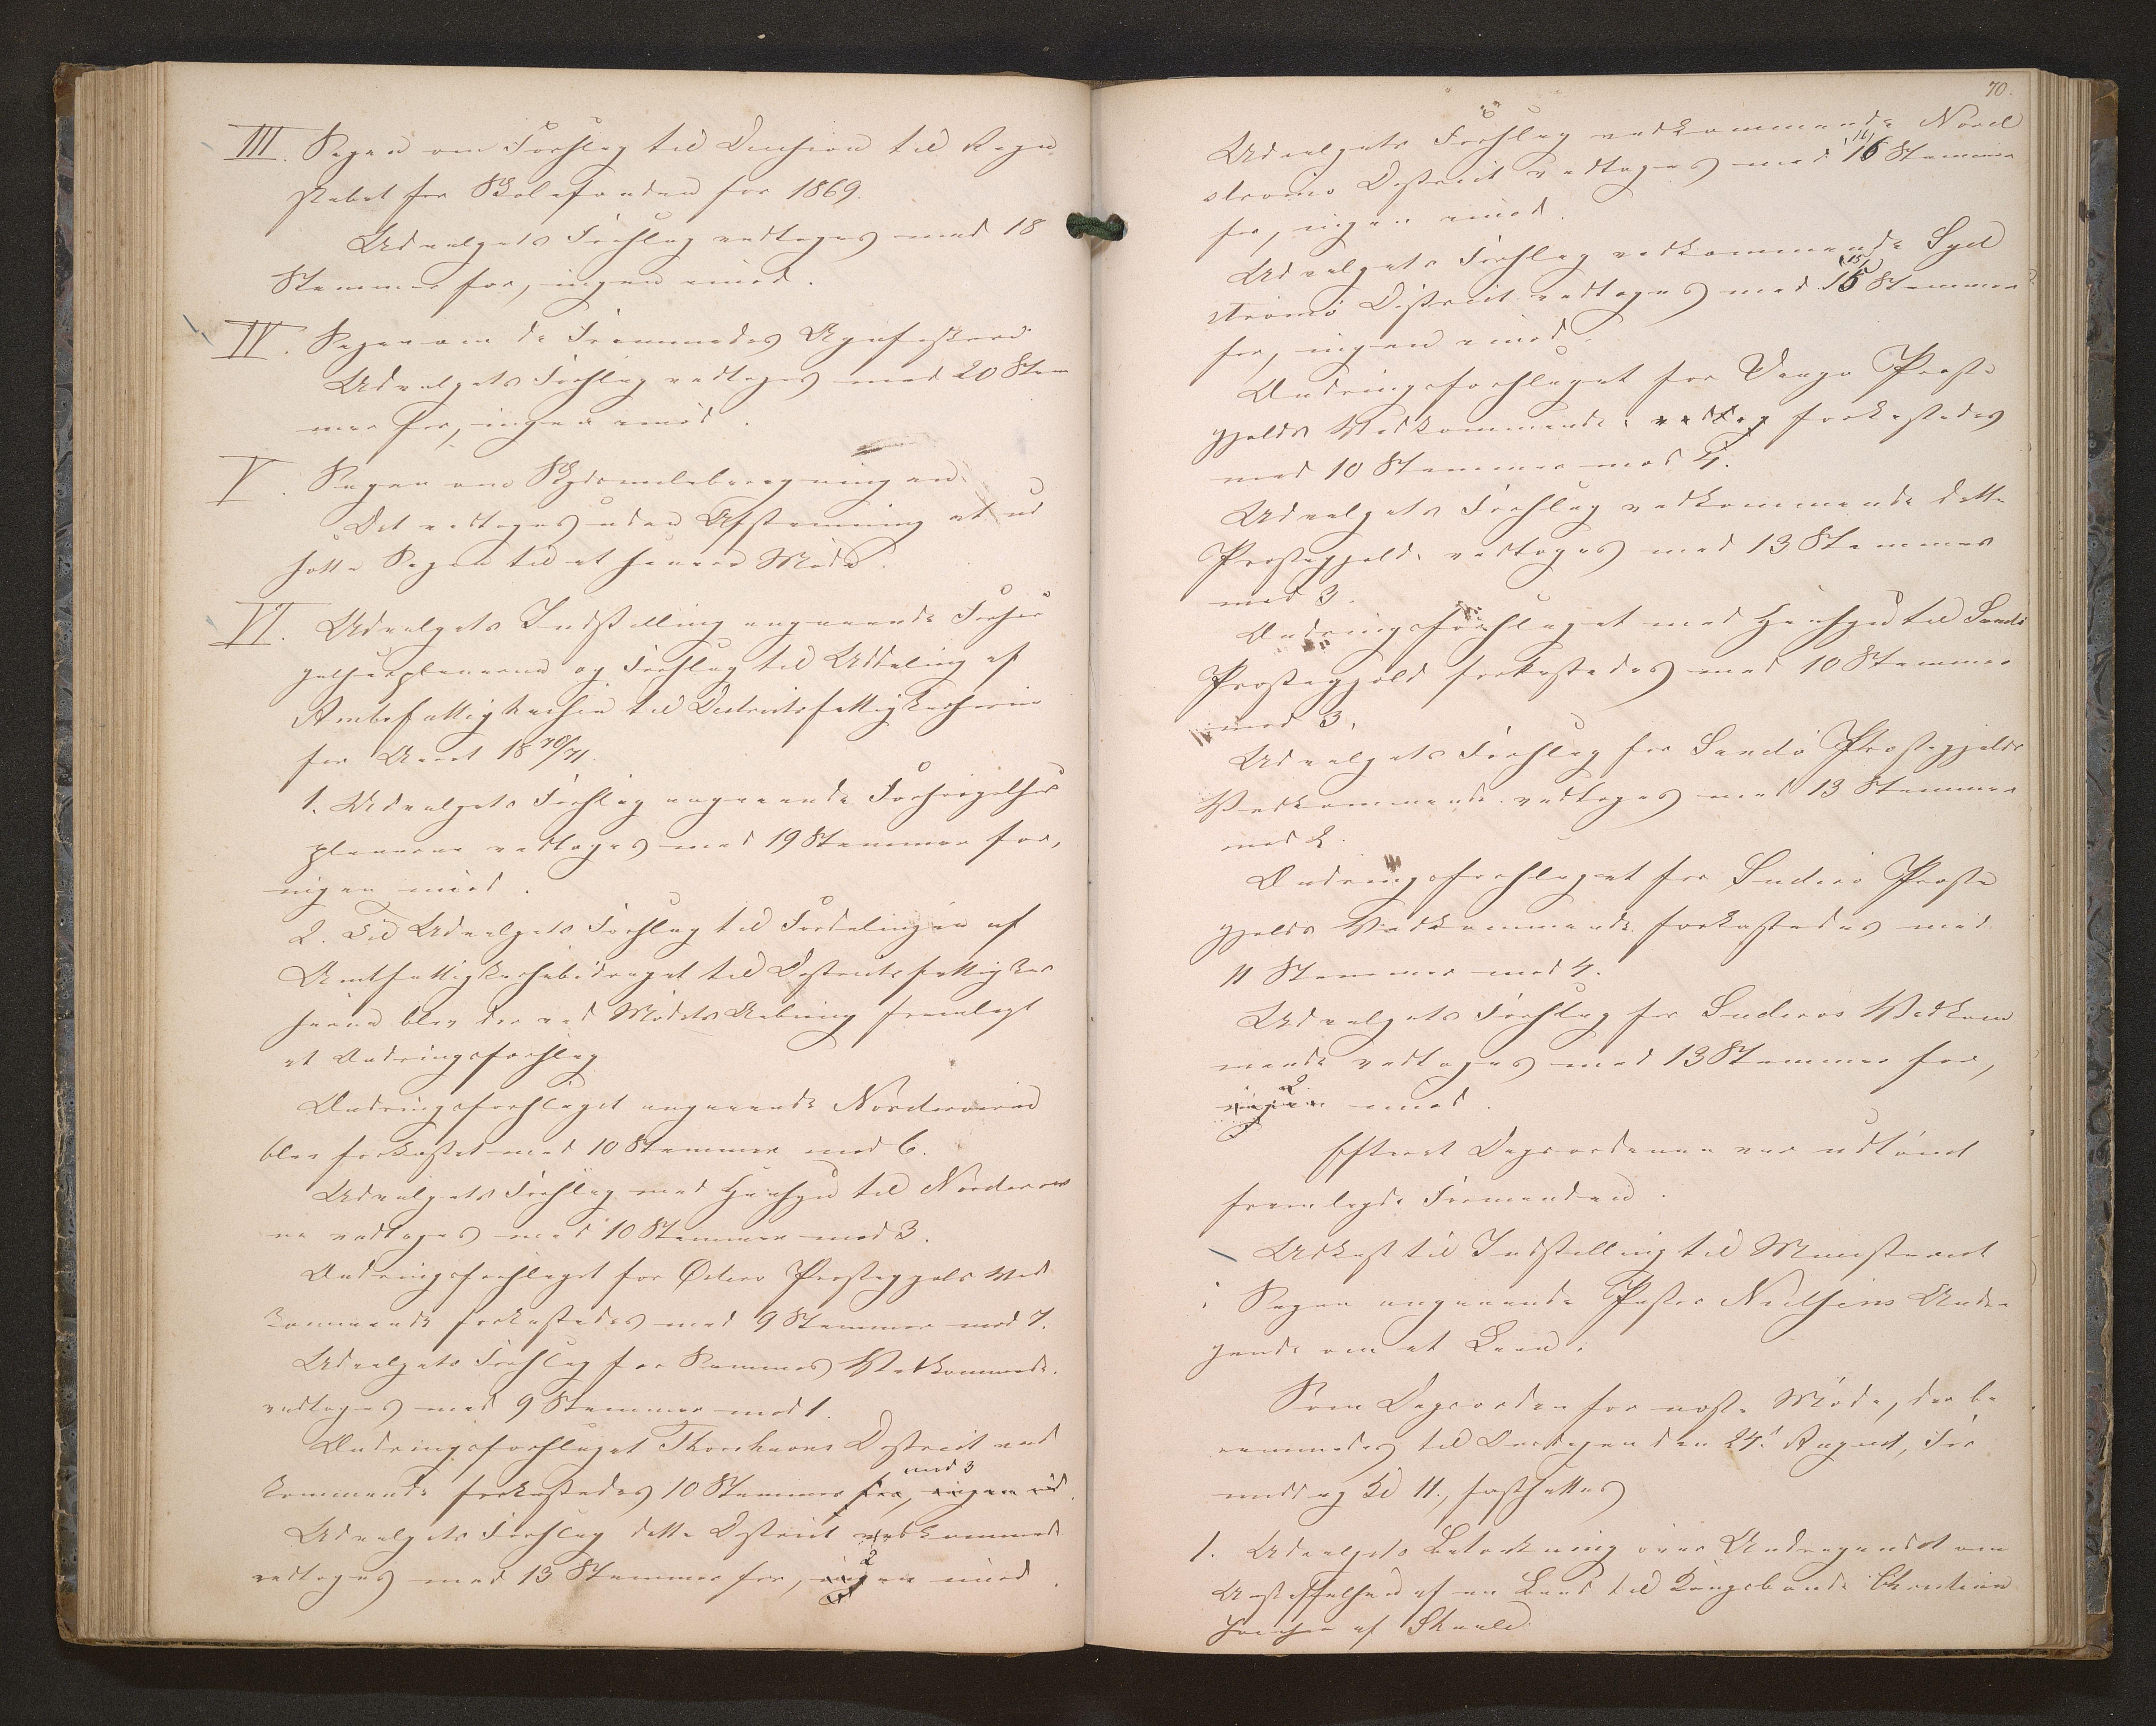 III. Sagen om Forslag til Decision til Regn
skabet for Skolefonden for 1869.
Udvalgets Forslag vedtoges med 18
Stemmer for, ingen imod.
IV. Sagen om de Fremmedes Agnfiskeri
Udvalgets Forslag vedtoges med 20 Stem
mer for, ingen imod.
V. Sagen om Skydsmilsberegningen.
Det vedtoges uden Afstemning at ud
sætte Sagen til et senere Møde.
VI. Udvalgets Indstilling angaaende Forsør
gelsesplanerne og Forslag til Uddeling af
Amtsfattigkassen til Districtsfattigkasserne
for Aaret 18 70/71.
1. Udvalgets Forslag angaaende Forsørgelses
planerne vedtoges med 19 Stemmer for,
ingen imod.
2. Til Udvalgets Forslag til Fordelingen af
Amtsfattigkassebidraget til Districtsfattigkas
serne blev der ved Mødets Aabning fremlagt
et Ændringsforslag
Ændringsforslaget angaaende Norderøerne
blev forkastet med 10 Stemmer mod 6.
Udvalgets Forslag med Hensyn til Norderøer
ne vedtoges med 10 Stemmer mod 3.
Ændringsforslaget for Østerø Præstegjelds Ved
kommende forkastedes med 9 Stemmer mod 7.
Udvalgets Forslag for Sammes Vedkommende
vedtoges med 9 Stemmer mod 1.
Ændringsforslaget Thorshavns District ved
mod 3
kommende forkastedes 10 Stemmer for, ingen imod.
Udvalgets Forslag dette District vedkommende
2
vedtoges med 13 Stemmer for, ingen imod.
70.
Udvalgets Forslag vedkommende Nord
strømø District vedtoges med 16 Stemmer
for, ingen imod.
Udvalgets Forslag vedkommende Syd
(15)
strømø District vedtoges med 15 Stemmer
for, ingen imod.
Ændringsforslaget for Vaagø Præste
gjelds Vedkommende vedtog forkastedes
med 10 Stemmer mod 4.
Udvalgets Forslag vedkommende dette
Præstegjeld vedtoges med 13 Stemmer
mod 3.
Ændringsforslaget med Hensyn til Sandø
Præstegjeld forkastedes med 10 Stemmer
mod 3.
Udvalgets Forslag for Sandø Præstegjelds
Vedkommende vedtoges med 13 Stemmer
mod 2.
Ændringsforslaget for Suderø Præste
gjelds Vedkommende forkastedes med
11 Stemmer mod 4.
Udvalgets Forslag for Suderøs Vedkom
mende vedtoges med 13 Stemmer for,
2
ingen imod.
Efterat Dagsordenen var udtømt
fremlagde Formanden.
Udkast til Indstilling til Ministeriet
i Sagen angaaende Pastor Nielsens Andra
gende om et Laan.
Som Dagsorden for næste Møde, der be
rammedes til Onsdagen den 24d August, For
middag Kl 11, fastsattes
1. Udvalgets Betænkning over Andragendet om
Udstiftelse af en Lund til Kongsbonde Christian
Joensen af Skaale